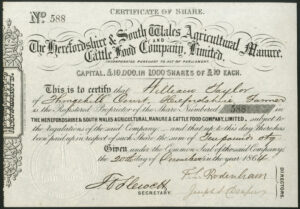 CERTIFICATE OF SHARE.
No 588
The Herefordshire & South Wales Agricultural Manure
AND
Cattle Food Company, Limited.
INCORPORATED PURSUANT TO ACT OF PARLIAMENT.
CAPITAL, £10,000, IN 1000 SHARES OF £10 EACH.
This is to certify that William Taylor
of Thinghill Court, Herefordshire Farmer
is the Registered Proprietor of the Share Numbered 588 in
THE HEREFORDSHIRE & SOUTH WALES AGRICULTURAL MANURE & CATTLE FOOD COMPANY, LIMITED, subject to
the regulations of the said Company and that up to this day there has
been paid up in respect of such Share the sum of Ten pounds
Given under the Common Seal of the said Company,
the 20th day of December in the year 1864
SECRETARY.
DIRECTORS.